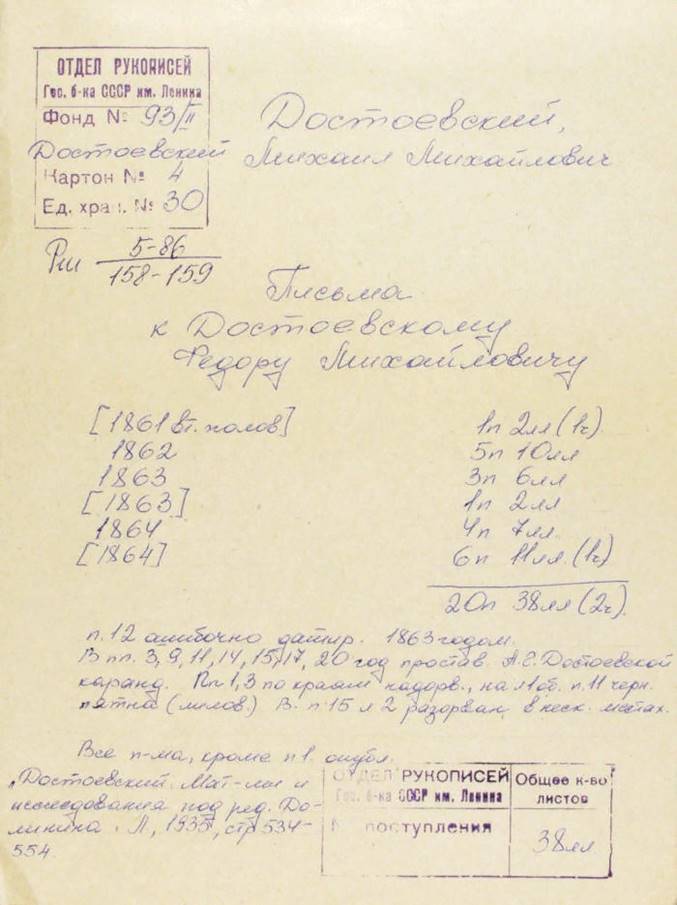 ОТДЕЛ РУКОПИСЕЙ
Гос. б-ка СССР им. Ленина
Фонд № 93/II
Достоевский
Картон № 4
Ед. хран. № 30
Достоевский,
Михаил Михайлович
5-86
158-159
Письма
к Достоевскому
Федору Михайловичу
[1861 вт. полов] 1п 2лл (1ч).
1862 5п 10лл
1863 3п 6лл
[1863] 1п 2лл
1864 4п 7лл.
[1864] 6п 11лл. (1ч)
20п 38лл (2ч).
п. 12 ошибочно датир. 1863 годом.
В пп. 3, 9, 11, 14, 15, 17, 20 год простав. А.Г. Достоевской
каранд. Пп 1, 3 по краям надорв., на л1об. п. 11 черн.
пятна (мелов.) В. п 15 л 2 разорван в неск. местах.
Все п-ма, кроме п1. опубл.
„Достоевский. Мат-лы и
исследования под ред. До-
линина. Л, 1935, стр 534-
554.
ОТДЕЛ РУКОПИСЕЙ
Гос. б-ка СССР им. Ленина
№ поступления
Общее к-во
листов
38лл